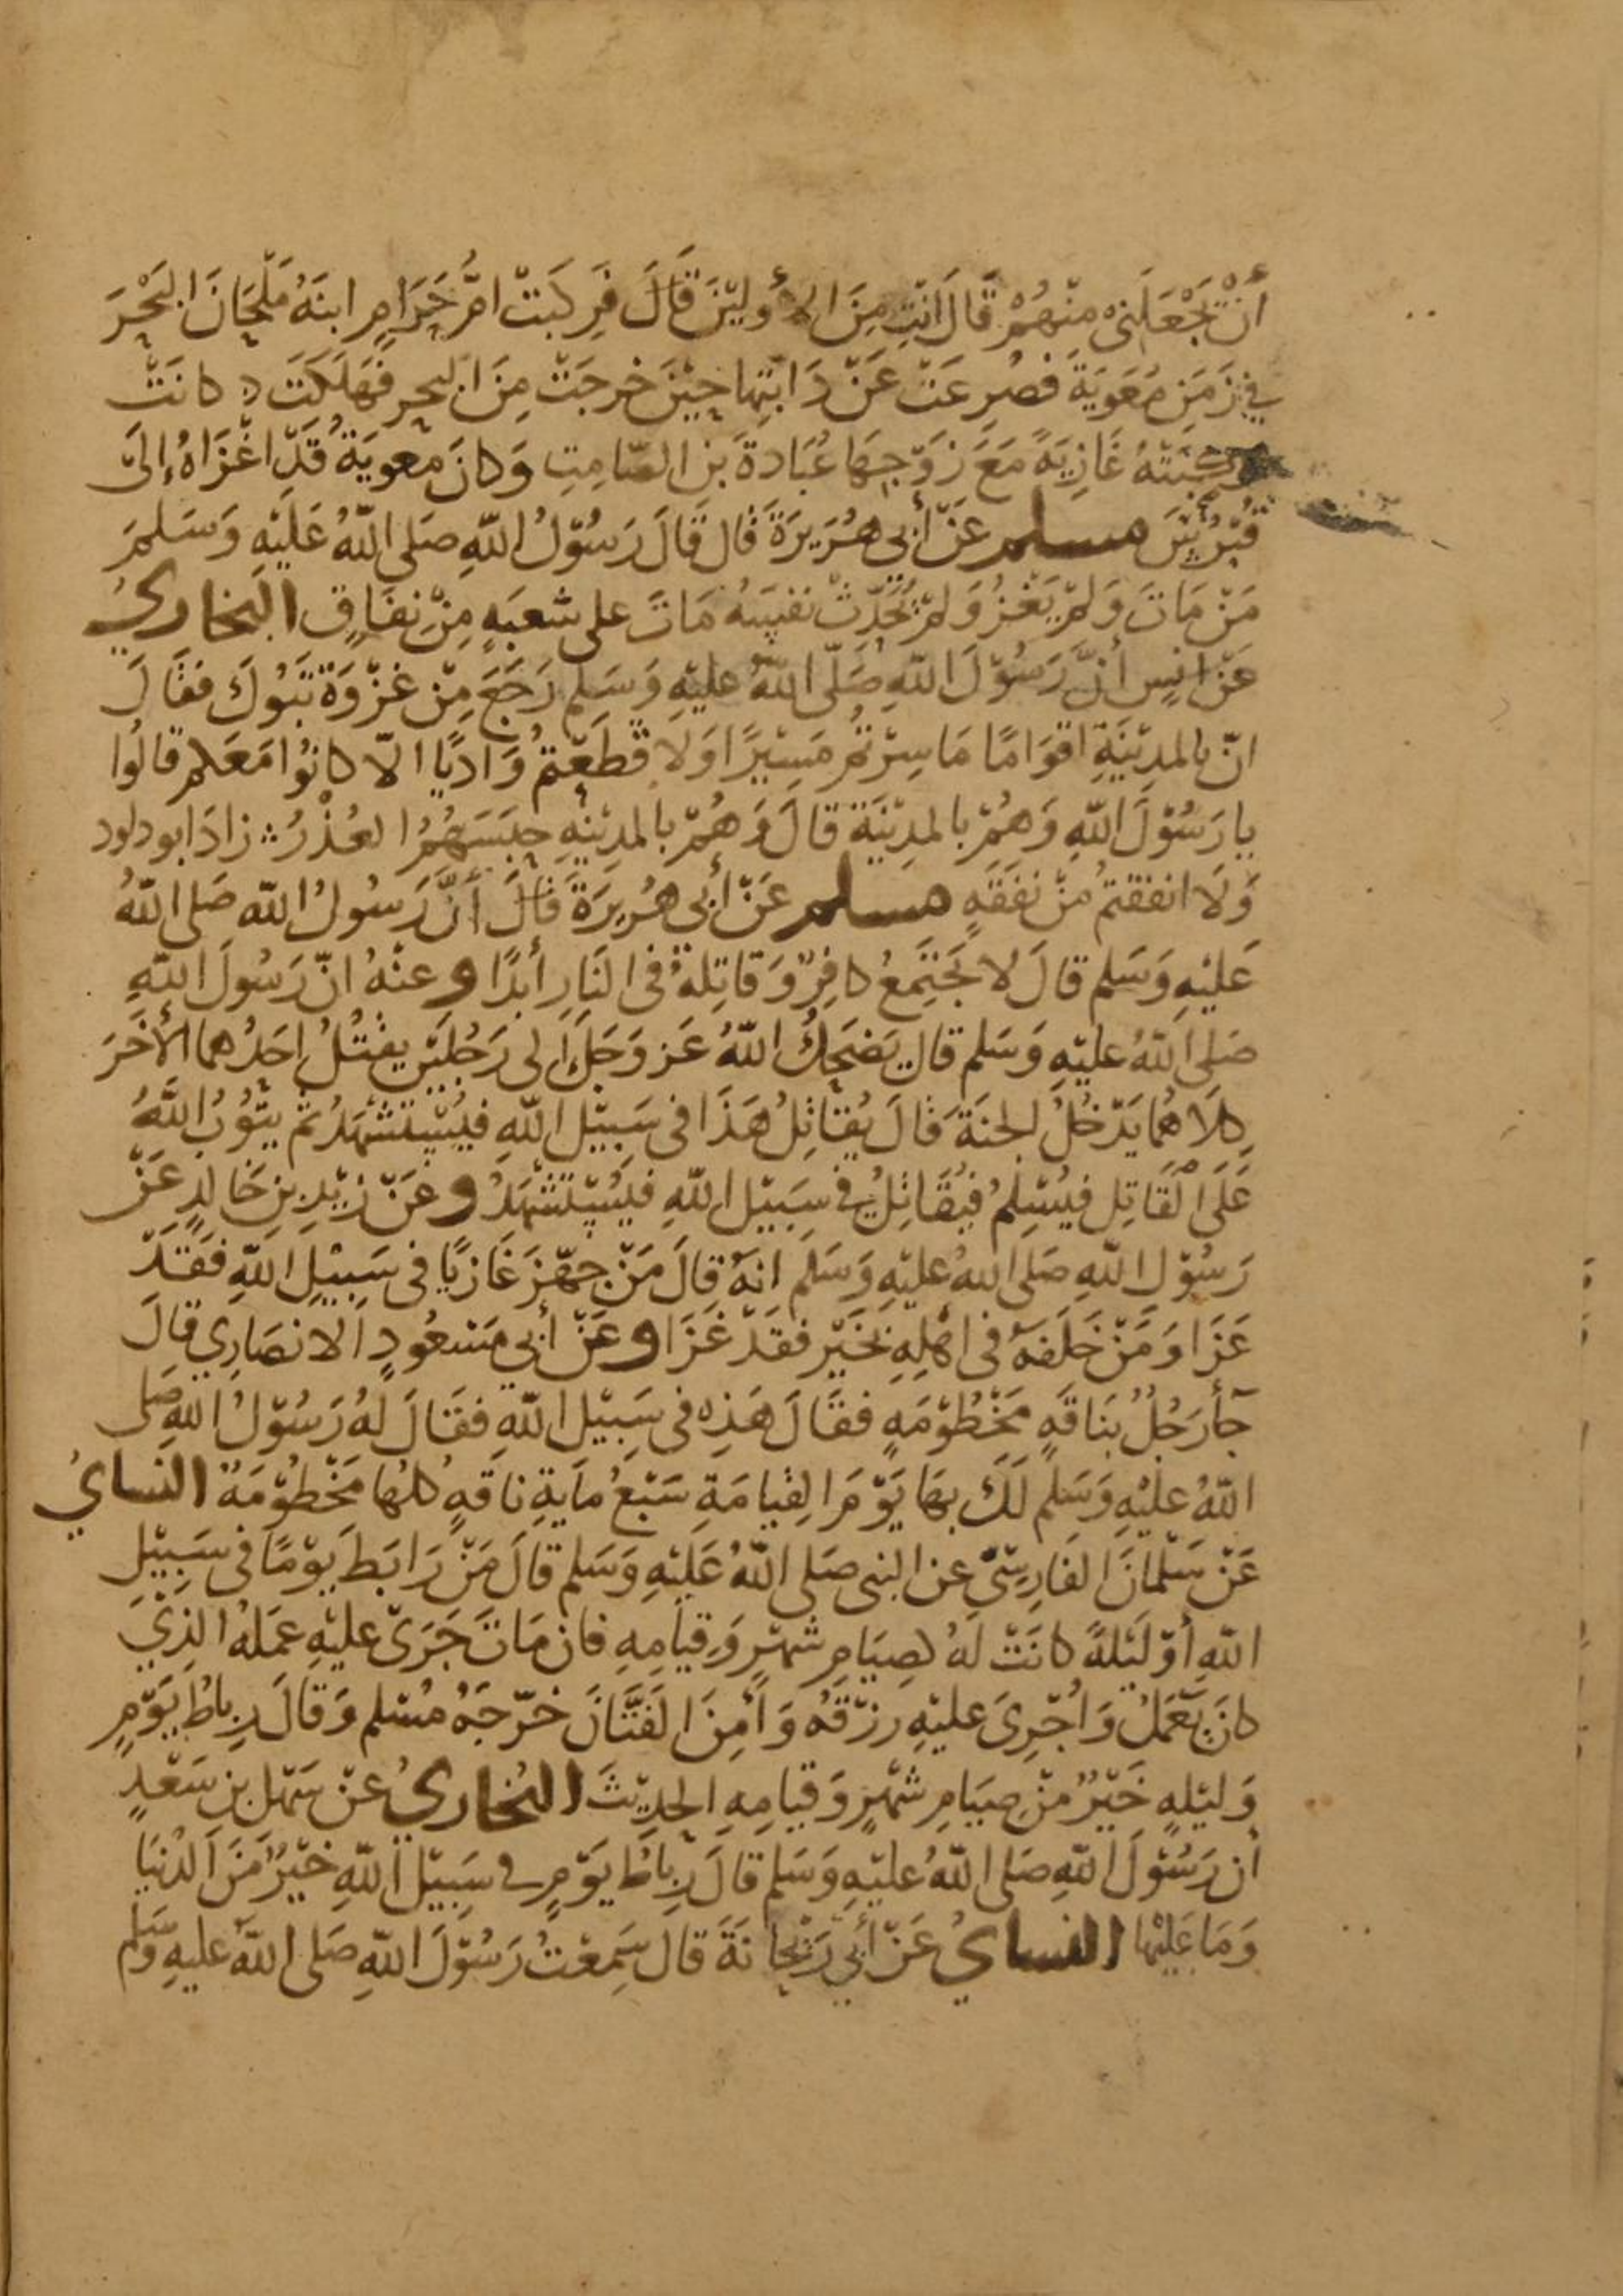 أَنْ يَجْعَلَنِى مِنْهُمْ قَالَ انْتِ مِنَ الأوليْنَ قَالَ فَرَكِبَتْ امُّ حَرَامٍ ابنَهُ مَلْحَانَ البَحْرَ
في زَمَنِ مُعَوِيَةَ فَصُرِعَتْ عَنْ دَابّتِها حِيْنَ خرجَتْ مِنَ البحرِ فَهَلَكَتْ و كانَتْ
غَازِيَةً مَعَ زَوْجِهَا عُبَادةَ بنِ الصَّامِتِ وَكانَ معويَةُ قَدْ اغْزَاهُ إلىَ
قُبْرُسَ مسلم عَنْ أبى هُرَيرَةَ قال قَالَ رَسُوْلُ اللهِ صَلى اللهُ عَلَيْهِ وَسَلمَ
مَنْ مَاتَ وَلَمْ يَغْزُ وَلَمْ يُحَدّثْ نفسَهُ مَاتَ على شعبَةٍ مِنْ نِفَاقٍ البخاريُ
عَنْ انسٍ أنَّ رَسُوْلَ اللهِ صَلّى اللهُ عليْهِ وَسَلم رَجَعَ مِنْ غزْوَةِ تَبُوكَ فقَالَ
انّ بالمدِيْنَةِ اقوَامًا مَا سِرْتُمْ مَسِيْرًا وَلا قَطَعْتمُ وَادِيًا الاّ كانُوْا مَعَكم قالُوا
يا رَسُوْلَ اللهِ وَهُمْ بالمدِيْنَةِ قالَ وَهُمْ بالمدِيْنَةِ حبَسَهُمُ العُذْرُ ۞ زادَ ابو داود
وَلَا انفقتمُ مِنْ نفَقَةٍ مسلم عَنْ أبى هُرِيرَةَ قَالَ أنَّ رَسُولُ الله صَلى اللهُ
عَليْهِ وَسَلم قالَ لا يَجْتَمِعُ كافِرٌ وَقاتِلهُ فى النَارِ أبدًا وعنْهُ انّ رَسُولَ اللهِ
صَلى اللهُ عليْهِ وَسَلم قال يَضحَكُ اللهُ عَز وَجَلّ إلى رَجُليْنِ يقتُلُ احَدُهما الأخَرَ
كِلَاهُمَا يَدْخُلُ الجنَةَ قالَ يُقاتِلُ هَذَا فى سَبِيْلِ اللهِ فيُسْتشْهَدُ ثمّ يتُوْبُ اللهُ
عَلَى القَاتِل فيُسْلِمُ فيُقَاتِلُ في سِبِيْلِ اللهِ فيُسْتشْهَدُ وعَنْ زيْدِ بنِ خَالدٍ عَنْ
رَسُوْلِ اللهِ صَلَى اللهُ عليْهِ وَسَلَم انهُ قالَ مَنْ جهّزَ غَازيًا فى سَبِيْلِ اللهِ فقَدْ
غَزَا وَمَنْ خَلَفَهُ فى اهْلِهِ بخَيْرٍ فقدْ غَزَا وعَنْ أبي مَسْعُودٍ الانصَارِي قالَ
جآء رَجُلٌ بنَاقَةٍ مَخْطُوْمَةٍ فقَالَ هَذِه فى سَبِيْلِ اللهِ فقَالَ لهُ رَسُوْلُ اللهِ صَلى
اللهُ عليْهِ وَسَلم لَكَ بهَا يَوْمَ القِيامَةِ سَبْعُ مايَةِ ناقَةٍ كلهُا مَخْطُوْمَةٌ النسايُ
عَنْ سَلْمانَ الفَارِسيّ عن النبى صَلى اللهُ عَليْهِ وَسَلم قالَ مَنْ رَابَطَ يوْمًا فى سَبِيْلِ
اللهِ أوْ ليْلةً كانَتْ لهُ كصِيَامِ شهْرٍ وَقِيامِهِ فان مَاتَ جَرَىْ عليْهِ عمَلهُ الذِيْ
كانَ يَعْمَلُ وَاُجْرِىَ عليْهِ رِزْقهُ وَأمِنَ الفَتَّانَ خرّجَهُ مُسْلم وَقالَ رِباطُ يَوْمٍ
وَليْلهٍ خَيْرٌ مِنْ صِيَامِ شهْرٍ وَقيامِهِ الحدِيْثَ البُخاريُ عَنْ سَهْلِ بنِ سَعْدٍ
أن رَسُوْلَ اللهِ صَلى اللهُ عليْهِ وَسَلم قالَ رِباطُ يَوْمٍ في سَبِيْلِ اللهِ خَيْرٌ مِنَ الدُنيَا
وَمَا عَليْها النسايُ عَنْ أبى رَيْحانَةَ قال سَمِعْتُ رَسُوْلَ اللهِ صَلى اللهُ عليهِ وَسَلم